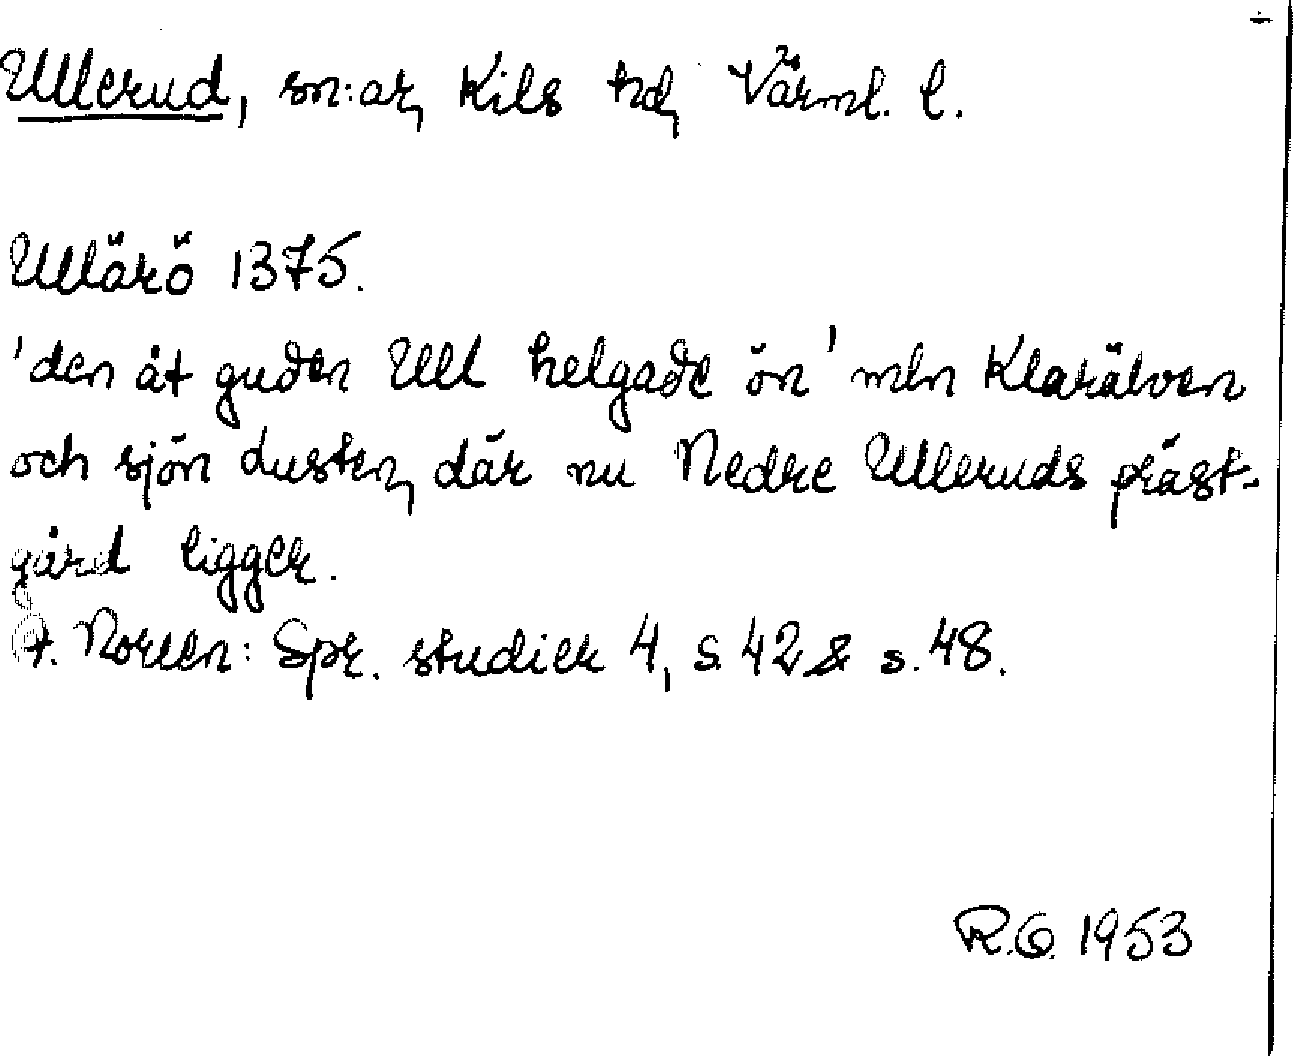 Ullerud, sn:ar, Kils hd, Värml. l.
Ullärö 1375.
'den åt guden Ull helgade ön' mln Klarälven
och sjön Lusten, där nu Nedre Ulleruds präst-
gård ligger.
A. Noreen: Spr. studier 4, s. 42 & s. 48.
R.G. 1953